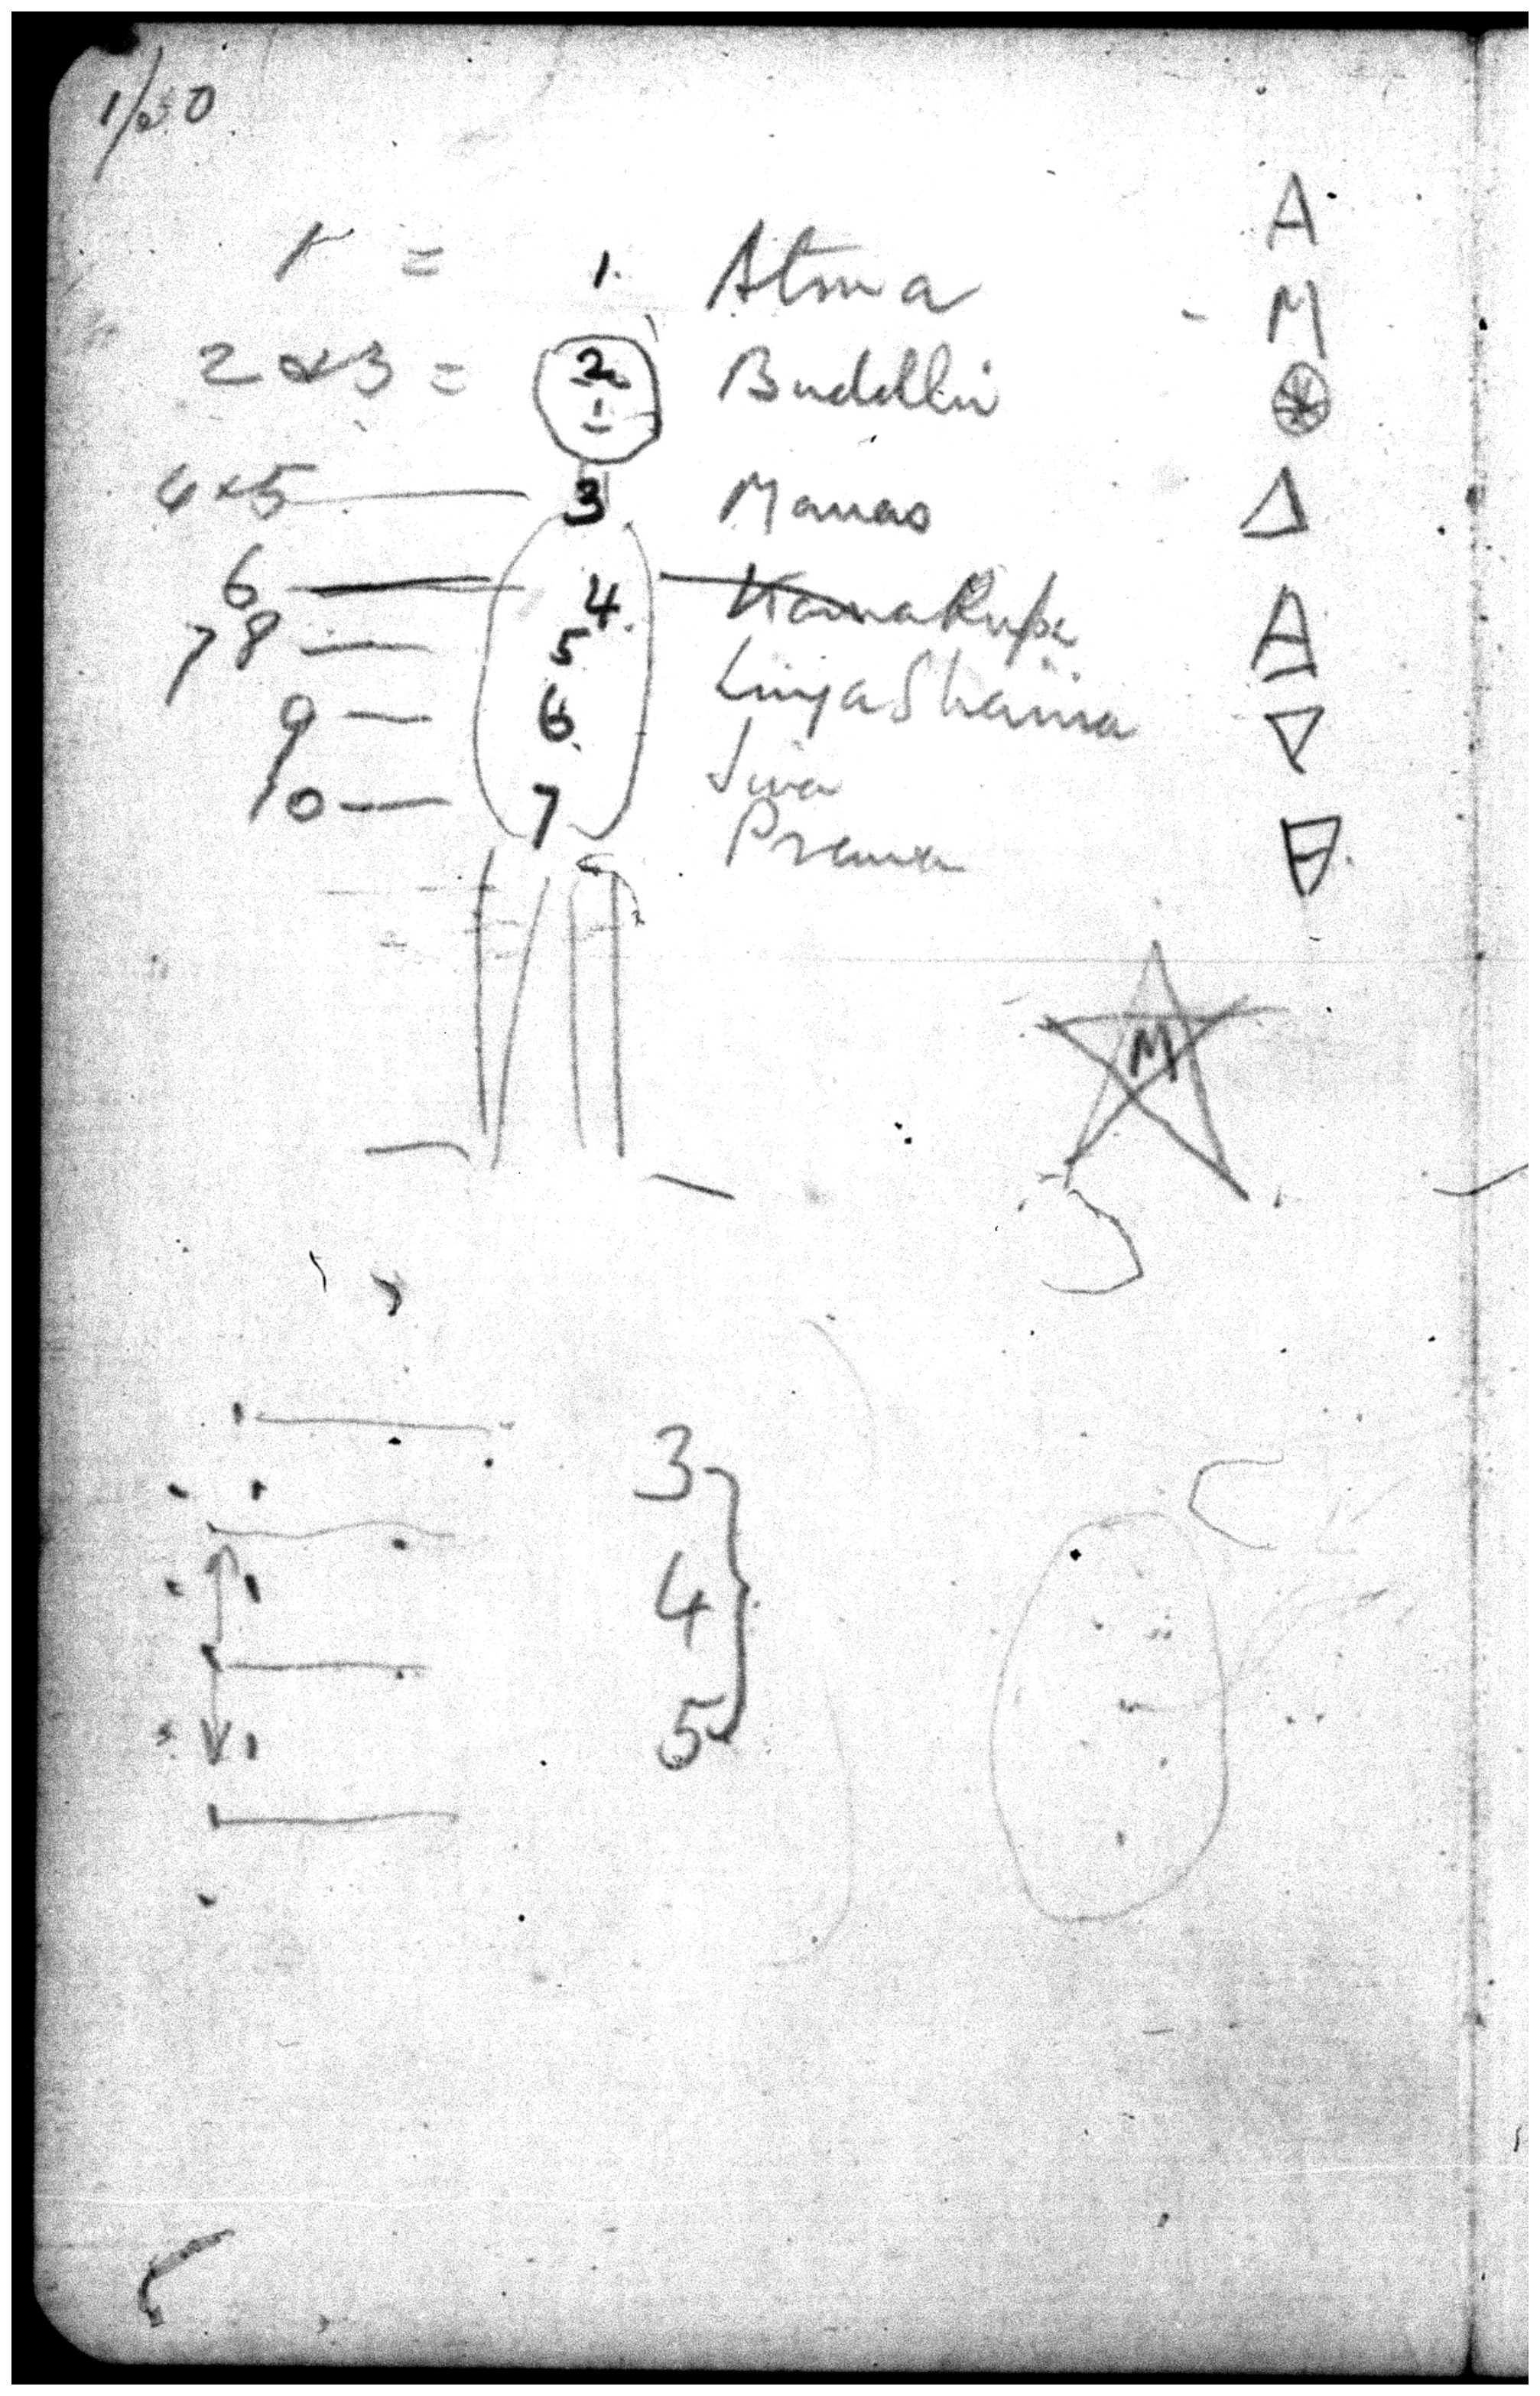 1 = 1. Atma A
M
2 & 3 = 2. Buddhi
1
4 & 5 3 Manas △
6 4. Kama Rupa
7 8 5. Linga Sharira
9 6. Jiva ▽
10 7 Prana
M
3
4
5